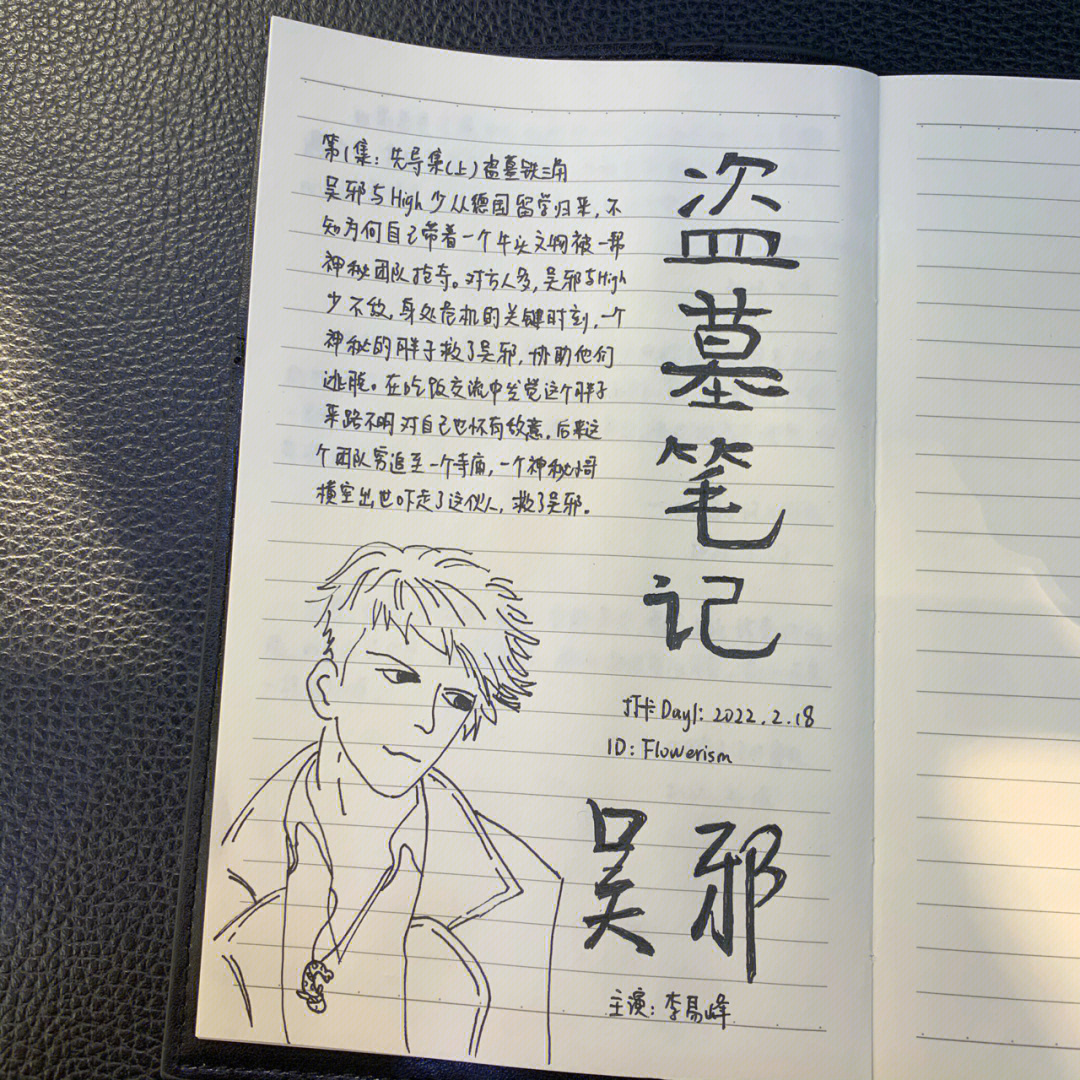 第1集：先导集(上)盗墓铁三角
吴邪与High少从德国留学归来，不
知为何自己带着一个牛头文物被一帮
神秘团队抢夺。对方人多，吴邪与High
少不敌，身处危机的关键时刻，一个
神秘的胖子救了吴邪，协助他们
逃脱。在吃饭交流中发觉这个胖子
来路不明对自己也怀有敌意，后来这
个团队穷追至一个寺庙，一个神秘小哥
横空出世吓走了这伙人，救了吴邪。
盗墓笔记
打卡Day1：2022.2.18
ID：Flowerism
吴邪
主演：李易峰